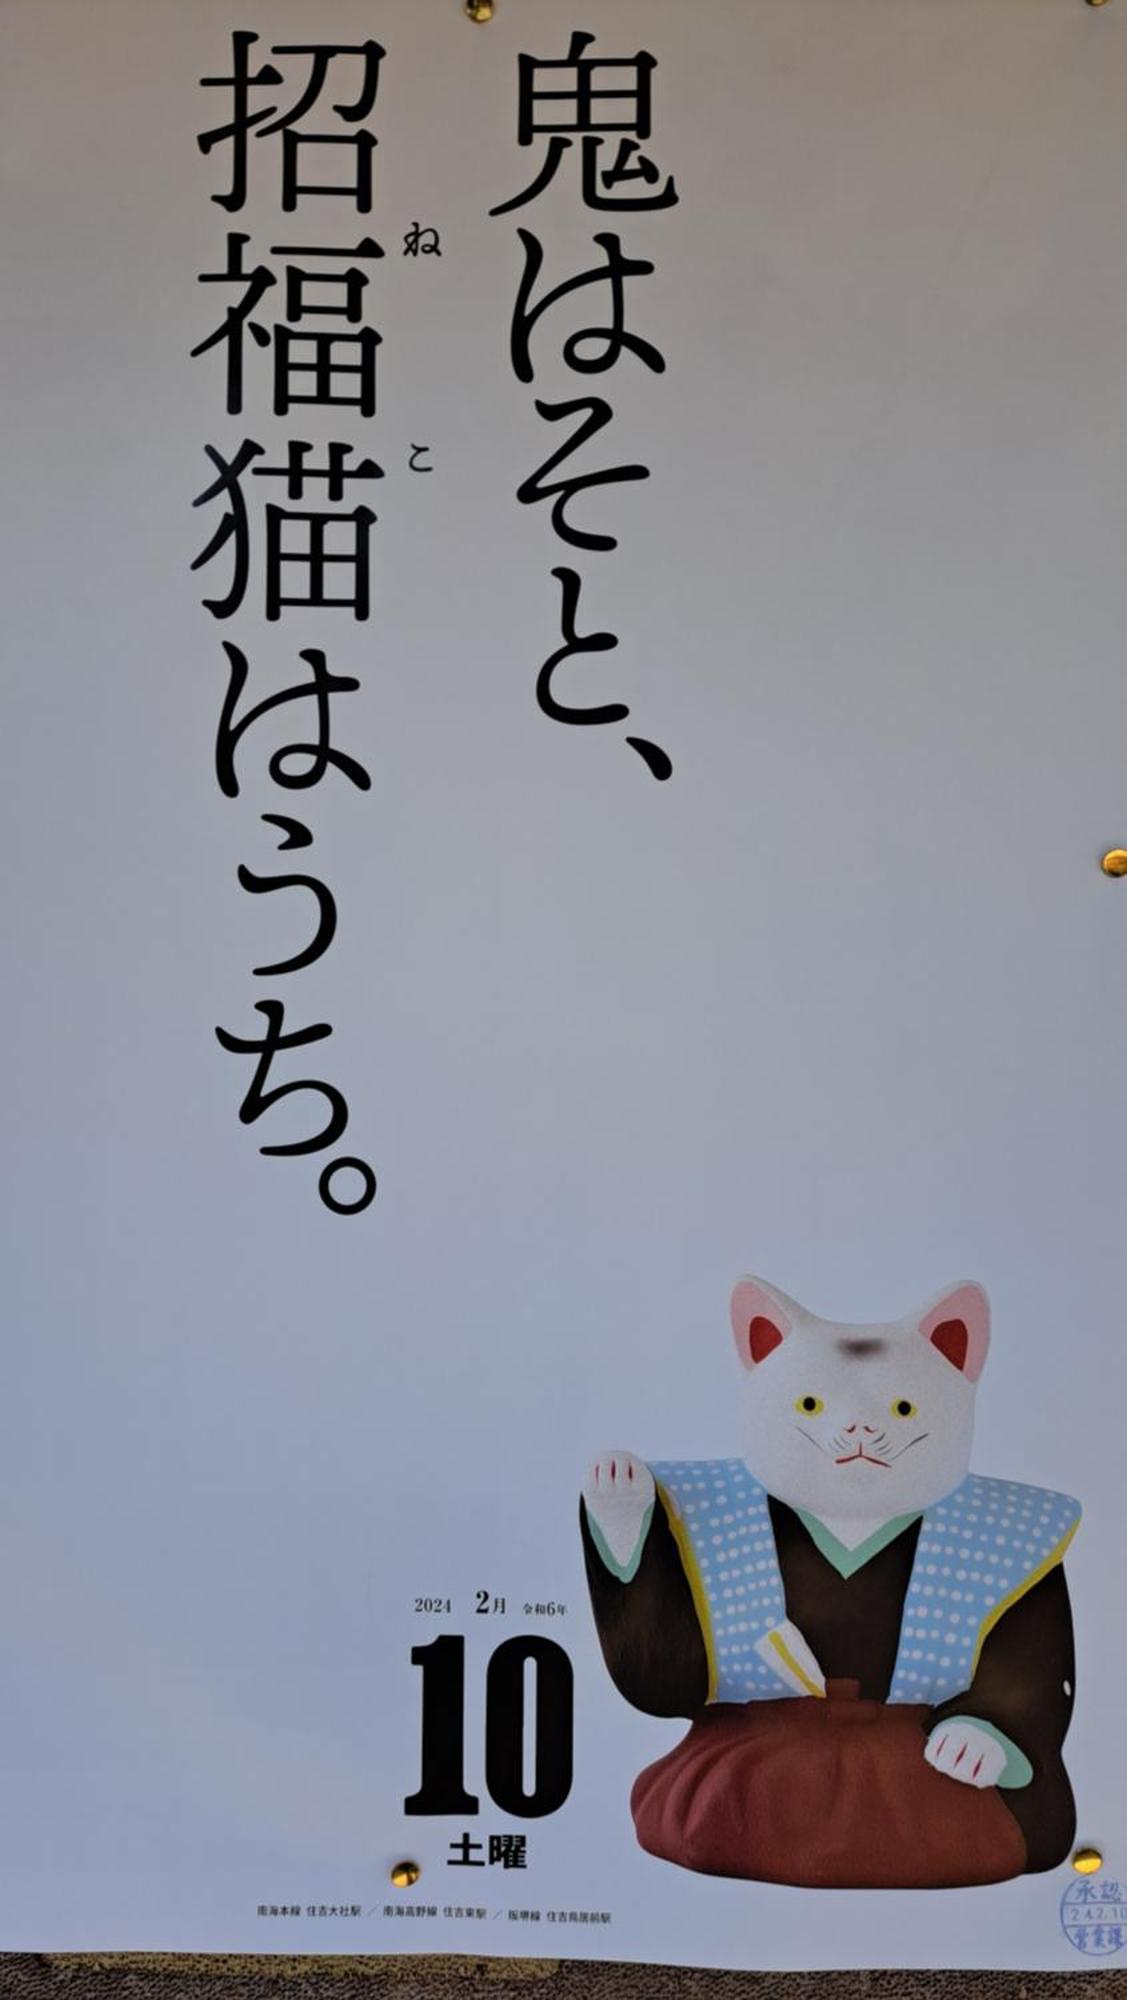 鬼はそと、
招福猫はうち。
ね
こ
2024 2月 令和6年
10
土曜
南海本線 住吉大社駅 ／ 南海高野線 住吉東駅 ／ 阪堺線 住吉鳥居前駅
承認
24.2.10
営業課